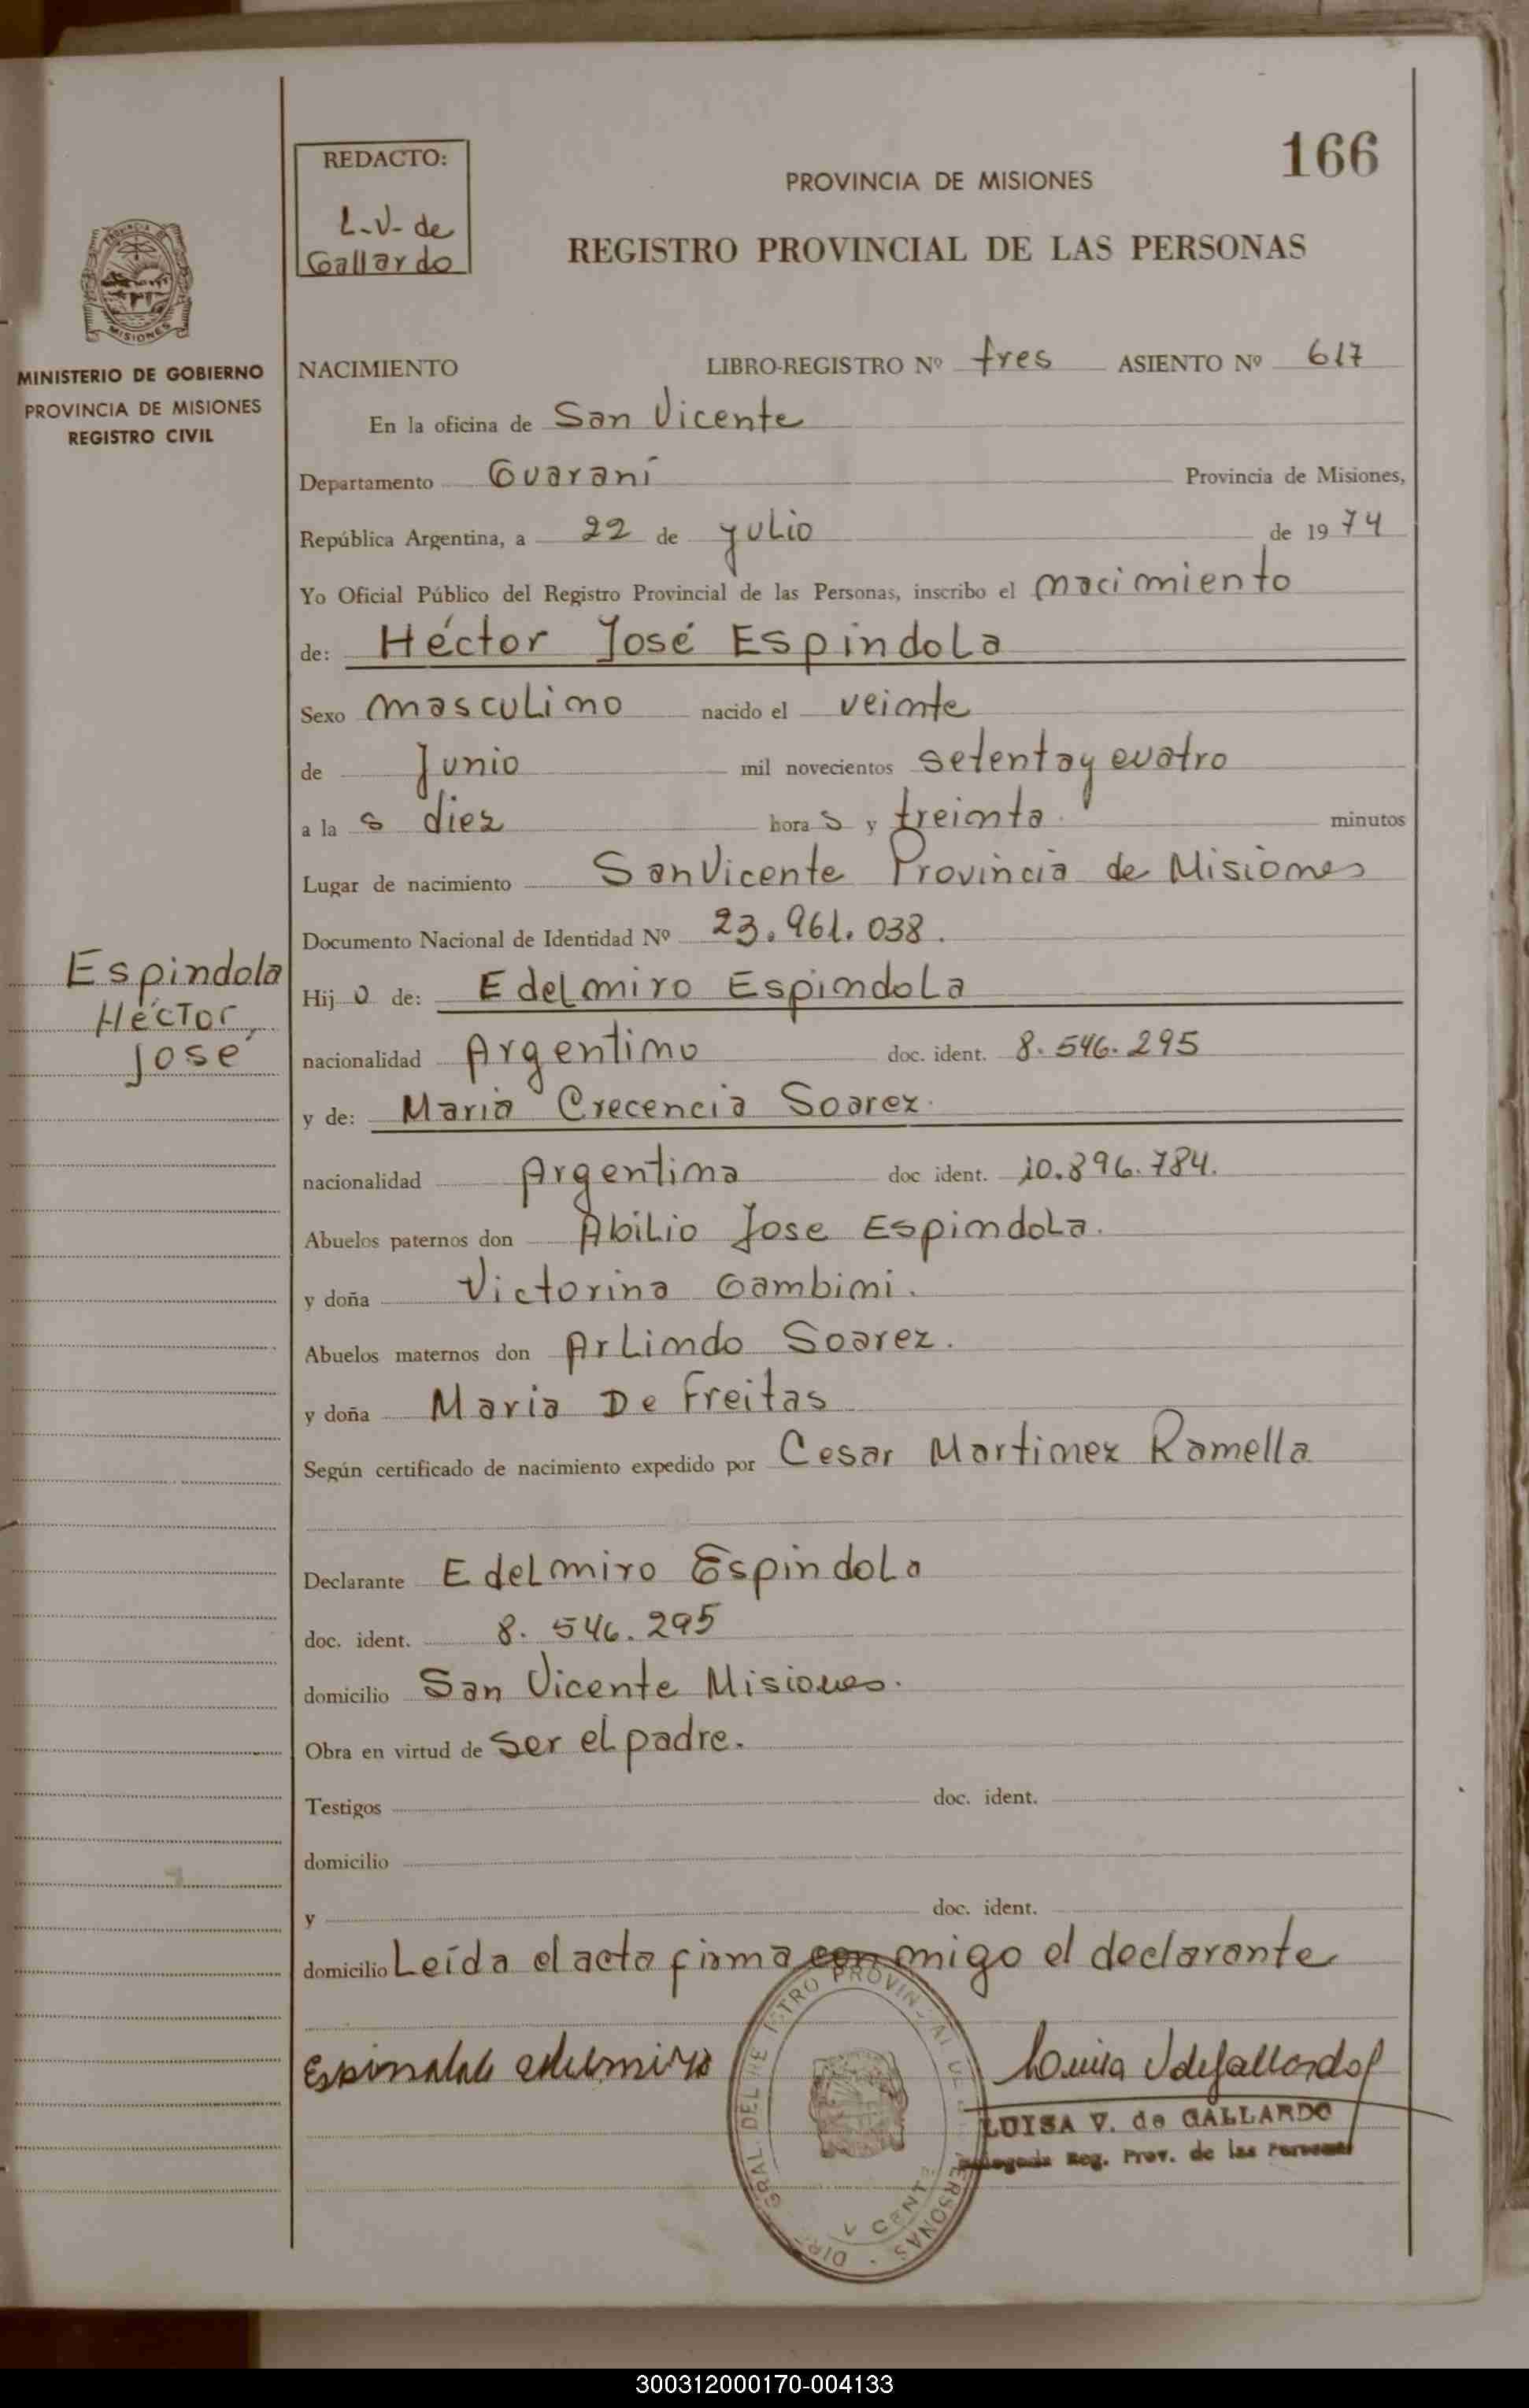 166
REDACTO:
L-V- de
Gallardo
PROVINCIA DE MISIONES
REGISTRO PROVINCIAL DE LAS PERSONAS
MISIONES
MINISTERIO DE GOBIERNO
PROVINCIA DE MISIONES
REGISTRO CIVIL
NACIMIENTO LIBRO-REGISTRO Nº tres ASIENTO Nº 617
En la oficina de San Vicente
Departamento Guaraní Provincia de Misiones,
República Argentina, a 22 de julio de 1974
Yo Oficial Público del Registro Provincial de las Personas, inscribo el nacimiento
de: Héctor José Espindola
Sexo masculino nacido el veinte
de Junio mil novecientos setenta y cuatro
a la s diez hora s y treinta minutos
Lugar de nacimiento San Vicente Provincia de Misiones
Documento Nacional de Identidad Nº 23.961.038.
Espindola
Héctor,
José
Hijo de: Edelmiro Espindola
nacionalidad Argentino doc. ident. 8.546.295
y de: Maria Crecencia Soarez.
nacionalidad Argentina doc ident. 10.896.784.
Abuelos paternos don Abilio Jose Espindola.
y doña Victorina Gambini.
Abuelos maternos don Arlindo Soarez.
y doña Maria De Freitas
Según certificado de nacimiento expedido por Cesar Martinez Ramella
Declarante Edelmiro Espindola
doc. ident. 8.546.295
domicilio San Vicente Misiones.
Obra en virtud de ser el padre.
Testigos doc. ident.
domicilio
y doc. ident.
domicilio Leída el acta firma conmigo el declarante
Espindola edelmiro
Luisa V de Gallardo
LUISA V. de GALLARDO
Reg. Prov. de las Personas
300312000170-004133